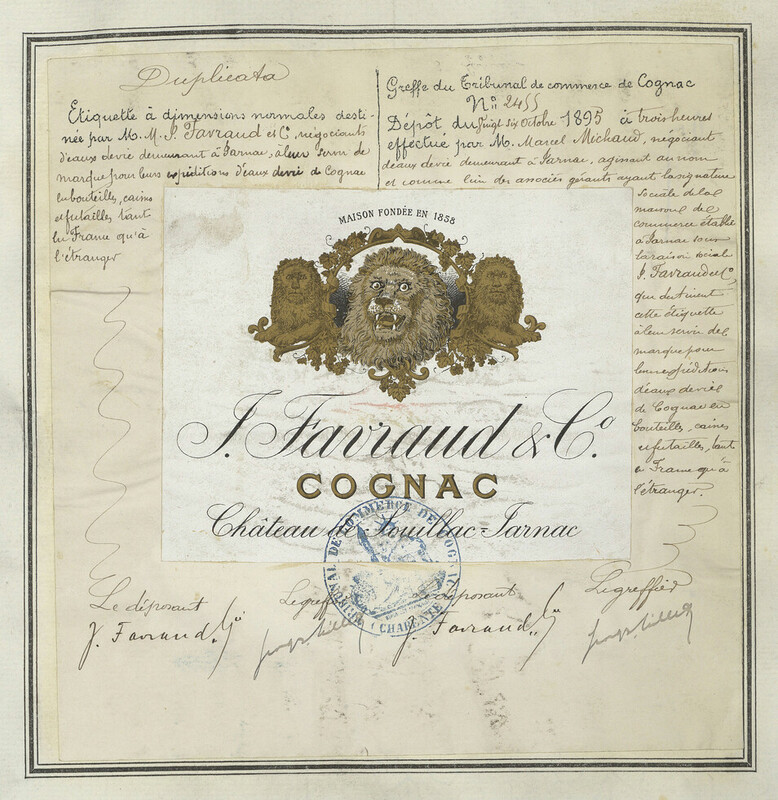 Duplicata
Etiquette à dimensions normales desti-
née par M.M. J. Favraud et Cº, négociants
d'eaux devie demeurant à Jarnac, à leur servir de
marque pour leurs expéditions d'eaux devie de Cognac
en bouteilles, caisses
et futailles tant
en France qu'à
l'étranger
Greffe du Tribunal de commerce de Cognac
Nº 2455
Dépôt, du vingt six Octobre 1895 à trois heures
effectué par M. Marcel Michaud, négociant
d'eaux devie demeurant à Jarnac, agissant au nom
et comme l'un des associés gérants ayant la signature
sociale de la
maison de
commerce établie
à Jarnac sous
la raison sociale
J. Favraud et Cº,
qui destinent
cette étiquette
à leur servir de
marque pour
leurs expéditions
d'eaux devie
de Cognac en
bouteilles, caisses
et futailles, tant
en France qu'à
l'étranger.
MAISON FONDÉE EN 1858
J. Favraud & Cº
COGNAC
Château de Souillac-Jarnac
TRIBUNAL DE COMMERCE DE COGNAC
CHARENTE
Le déposant
J. Favraud & Cie
Le greffier
Le déposant
J. Favraud & Cie
Le greffier